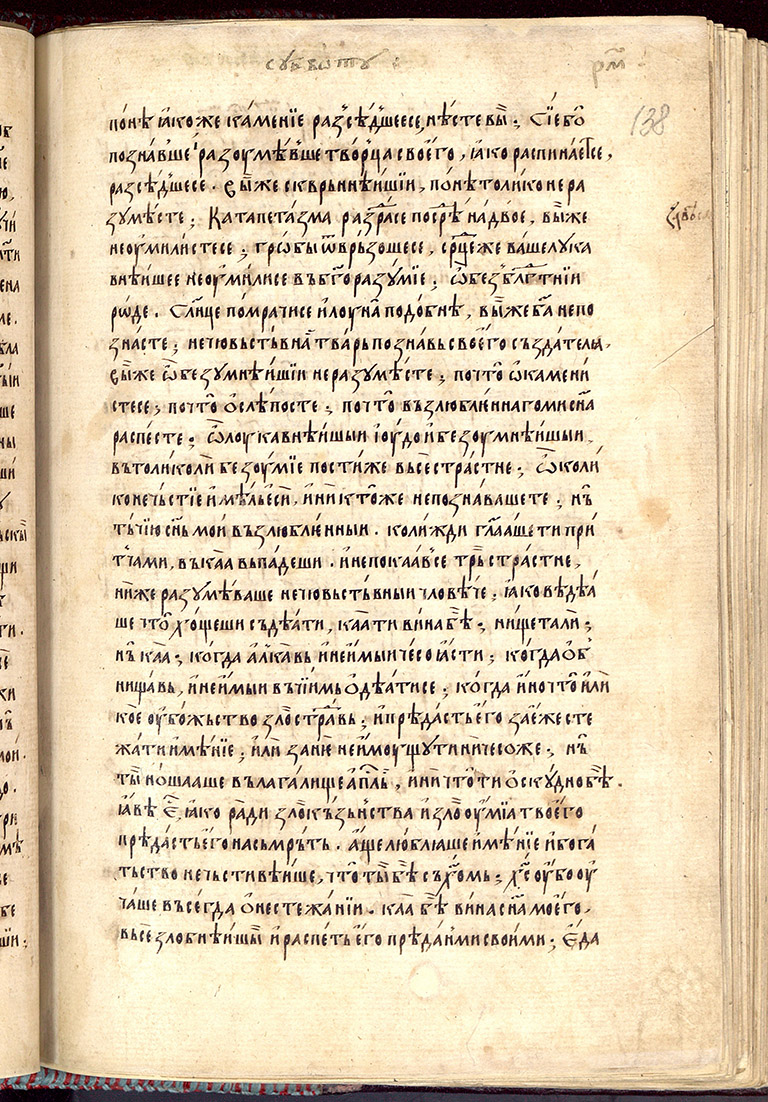 сꙋбвѡтꙋ :
рм҃і
138
понѣ ꙗкоже каменїе раꙁсѣдшеесе, нѣсте вы҃ ; Сїе бо
поꙁнавше раꙁоумѣвше творца своего, ꙗко распинаетсе,
раꙁсѣдшесе. Выже скврьннѣишїи, понѣ толико не ра
ꙁꙋмѣсте ; Катапетаꙁма раꙁ҃расе посрѣ҃ на двое, выже
неоумилистесе ; гробы ѿврьꙁошесе, срц҃еже ваше лꙋка
внѣишее неоумилисе въ б҃горазꙋмїе ; ѽ беꙁбл҃гтнїи
рѡде. Сл҃нце помрачисе и лоуна подобнѣ, выже б҃а непо
ꙁнасте ; нечювьствна тварь поꙁна въ своего съꙁдателꙗ,
Выже ѽ беꙁꙋмнѣишїи нераꙁꙋмѣсте ; почто ѡкамени
стесе ; почто ослѣпосте ; почто въꙁлюблѥннаго ми с҃на
распесте ; ѽ лоукавнѣишыи їоудо и беꙁоумнѣишыи,
въ толико ли беꙁоумїе постиже вьсестрастне ; ѽ коли
ко нечьстїе имѣль еси, и никтоже непоꙁнавашете ; нъ
тъчїю с҃нь мои въꙁлюблѥнныи. колижди гл҃аше ти при
тчами, въ каа въпадеши. и непокаавсе трь҃страстне,
ниже раꙁꙋмѣваше нечювьствныи чловѣче ; ꙗко вѣдѣа
ше что хощеши съдѣати, каа ти вина бѣ ; нищета ли ;
нъ каа ; когда алка въ и неимыи чесо ꙗсти ; когда об
нища въ, и неимыи въ чїимь одѣатисе ; когда ино что или
кое оубожьство ꙁлостра҃въ ; и прѣдасть его ꙁа еже сте
жати имѣнїе ; или ꙁа не неимоущꙋти ничесоже ; нъ
ты ношааше въ лагалище ап҃ль, и ничто ти оскꙋдно бѣ.
ꙗвѣ е҃, ꙗко ради ꙁлокъꙁньства и ꙁлооумїа твоего
прѣдасть его на съмрьть. аще люблꙗше имѣнїе и бога
тьство нечьстивѣише, что ты бѣ съ х҃омь ; х҃с оубо оу
чаше въсегда о нестежанїи. каа бѣ вина с҃на моего,
вьсеꙁлобнѣишы и распеть его прѣдаими своими ; Еда